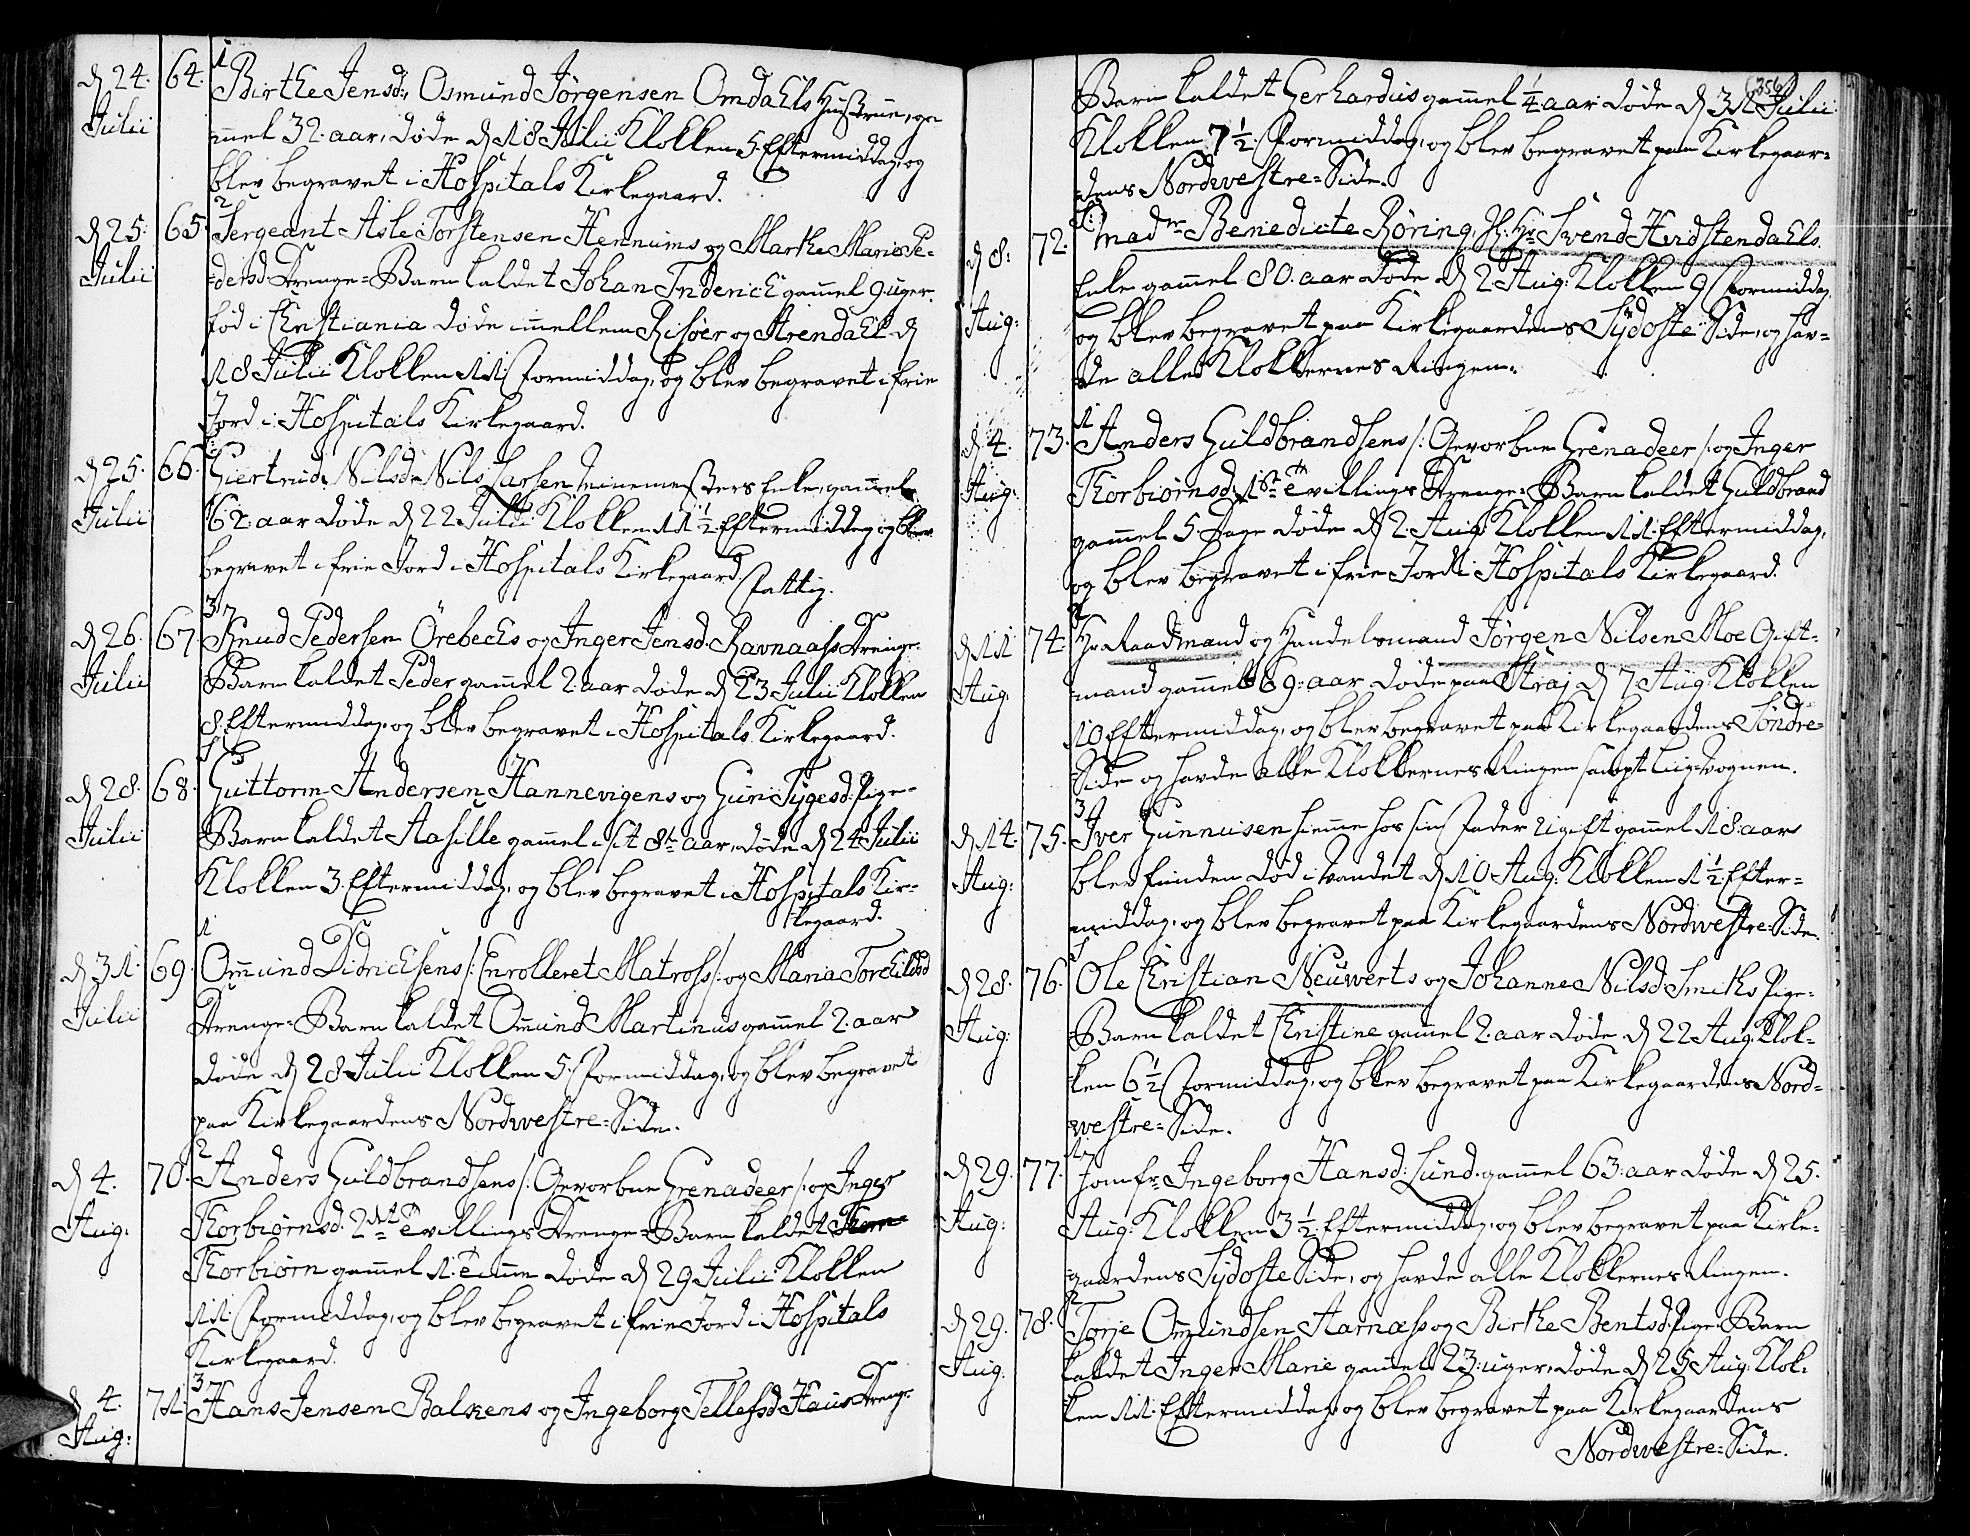 d 24. Julii 64. 1
Birthe Jensd:, Osmund Jörgensen Omdahls Hustrue, ga
mmel 32. aar, döde d 18 Julii Klokken 5. Eftermiddag, og
blev begravet i Hospitals Kirkegaard.
d 25. Julii 65. 2
Sergeant Asle Torstensen Hennums og Marthe Marie Pe-
dersd Drenge=Barn kaldet Johan Friderich gammel 9. uger.
föd i Christiania döde imellem Risöer og Arendahl d
18 Julii Klokken 11. Formiddag, og blev begravet i frie
Jord i Hospitals Kirkegaard.
d 25. Julii 66.
Giertrud Nilsd. Nils Larsen enke, gammel
62. aar döde d 22 Julii Klokken 11½. Eftermiddag og blev
begravet i frie Jord i Hospitals Kirkegaard Fattig.
d 26. Julii 67 3
Knud Pedersen Örebechs og Inger Jensd. Ravnaass Drenge-
Barn kaldet Peder gammel 2. aar döde d 23 Julii Klokken
8. Eftermiddag, og blev begravet i Hospitals Kirkegaard.
d 28. Julii 68.
Guttorm Andersen Hannevigens og Guri Tygesd. Pige-
Barn kaldet Aasille gammel i sit 8de aar, döde d 24 Julii
Klokken 3. Eftermiddag, og blev begravet i Hospitals Kir-
kegaard.
d 31. Julii 69. 1
Omund Didrichsens /: Enrolleret Matross :/ og Maria Torchildsd
Drenge=Barn kaldet Omund Martinus gammel 2. aar
döde d 28 Julii Klokken 5. Formiddag, og blev begravet
paa Kirkegaardens Nordwestre=Side.
d 4. Aug: 70. 2
Anders Guldbrandsens /: Gevorbne Grenadeer :/ og Inger
Thorbiörnsd. 2de Tvillings Drenge=Barn kaldet
Thorbiörn gammel 1. Time döde d 29 Julii Klokken
11. Formiddag, og blev begravet i frie Jord i Hospitals
Kirkegaard.
d 4. Aug: 71. 3
Hans Jensen Balkens og Ingeborg Tellefsd Haus Drenge-
356
Barn kaldet Gerhardus gammel ¼ aar döde d 31 Julii
Klokken 7½. Formiddag, og blev begravet paa Kirkegaar=
dens Nordwestre=Side.
d 8. Aug: 72.
Madme Benedicte Röring, Sl. Hr Svend Herdstendahls
Enke gammel 80. aar döde d 2 Aug: Klokken 9 Formiddag
og blev begravet paa Kirkegaardens Sydoste Side, og hav=
de alle Klokkernes Ringen.
d 4. Aug: 73. 1
Anders Guldbrandsens /: Gevorbne Grenadeer :/ og Inger
Thorbiörnsd. 1ste Tvillings Drenge=Barn kaldet Guldbrand
gammel 5 Dage döde d 2. Aug: Klokken 11. Eftermiddag,
og blev begravet i frie Jord i Hospitals Kirkegaard.
d 11 Aug: 74. 2
Hr Raadmand og Handelsmand Jörgen Nilsen Moe Gift=
mand gammel 69. aar döde paa Straj d 7 Aug: Klokken
10 Eftermiddag, og blev begravet paa Kirkegaardens Söndre=
Side og havde alle Klokkernes Ringen sampt Liig=Vognen.
d 14. Aug: 75. 3
Iver Gunnusen hiemme hos sin Fader ugift gammel 18. aar
blev funden död i Vandet d 10 Aug: Klokken 1½. Efter=
middag, og blev begravet paa Kirkegaardens Nordwestre=Side.
d 28. Aug: 76.
Ole Christian Neuwerts og Johanne Nilsd. Smiths Pige=
Barn kaldet Christine gammel 2. aar döde d 22 Aug. Klok=
ken 6½ Formiddag, og blev begravet paa Kirkegaardens Nord=
westre=Side.
d 29. Aug: 77. 1
Jomfr Ingeborg Hansd: Lund. gammel 63. aar döde d 25.
Aug: Klokken 3½. Eftermiddag, og blev begravet paa Kirke=
gaardens Sydoste Side, og havde alle Klokkernes Ringen.
d 29. Aug. 78. 2
Torje Omundsen Aarnæss og Birthe Bentsd. Pige=Barn
kaldet Inger Marie gammel 23. uger, döde d 25 Aug: Klok=
ken 11. Eftermiddag, og blev begravet paa Kirkegaardens
Nordwestre=Side.